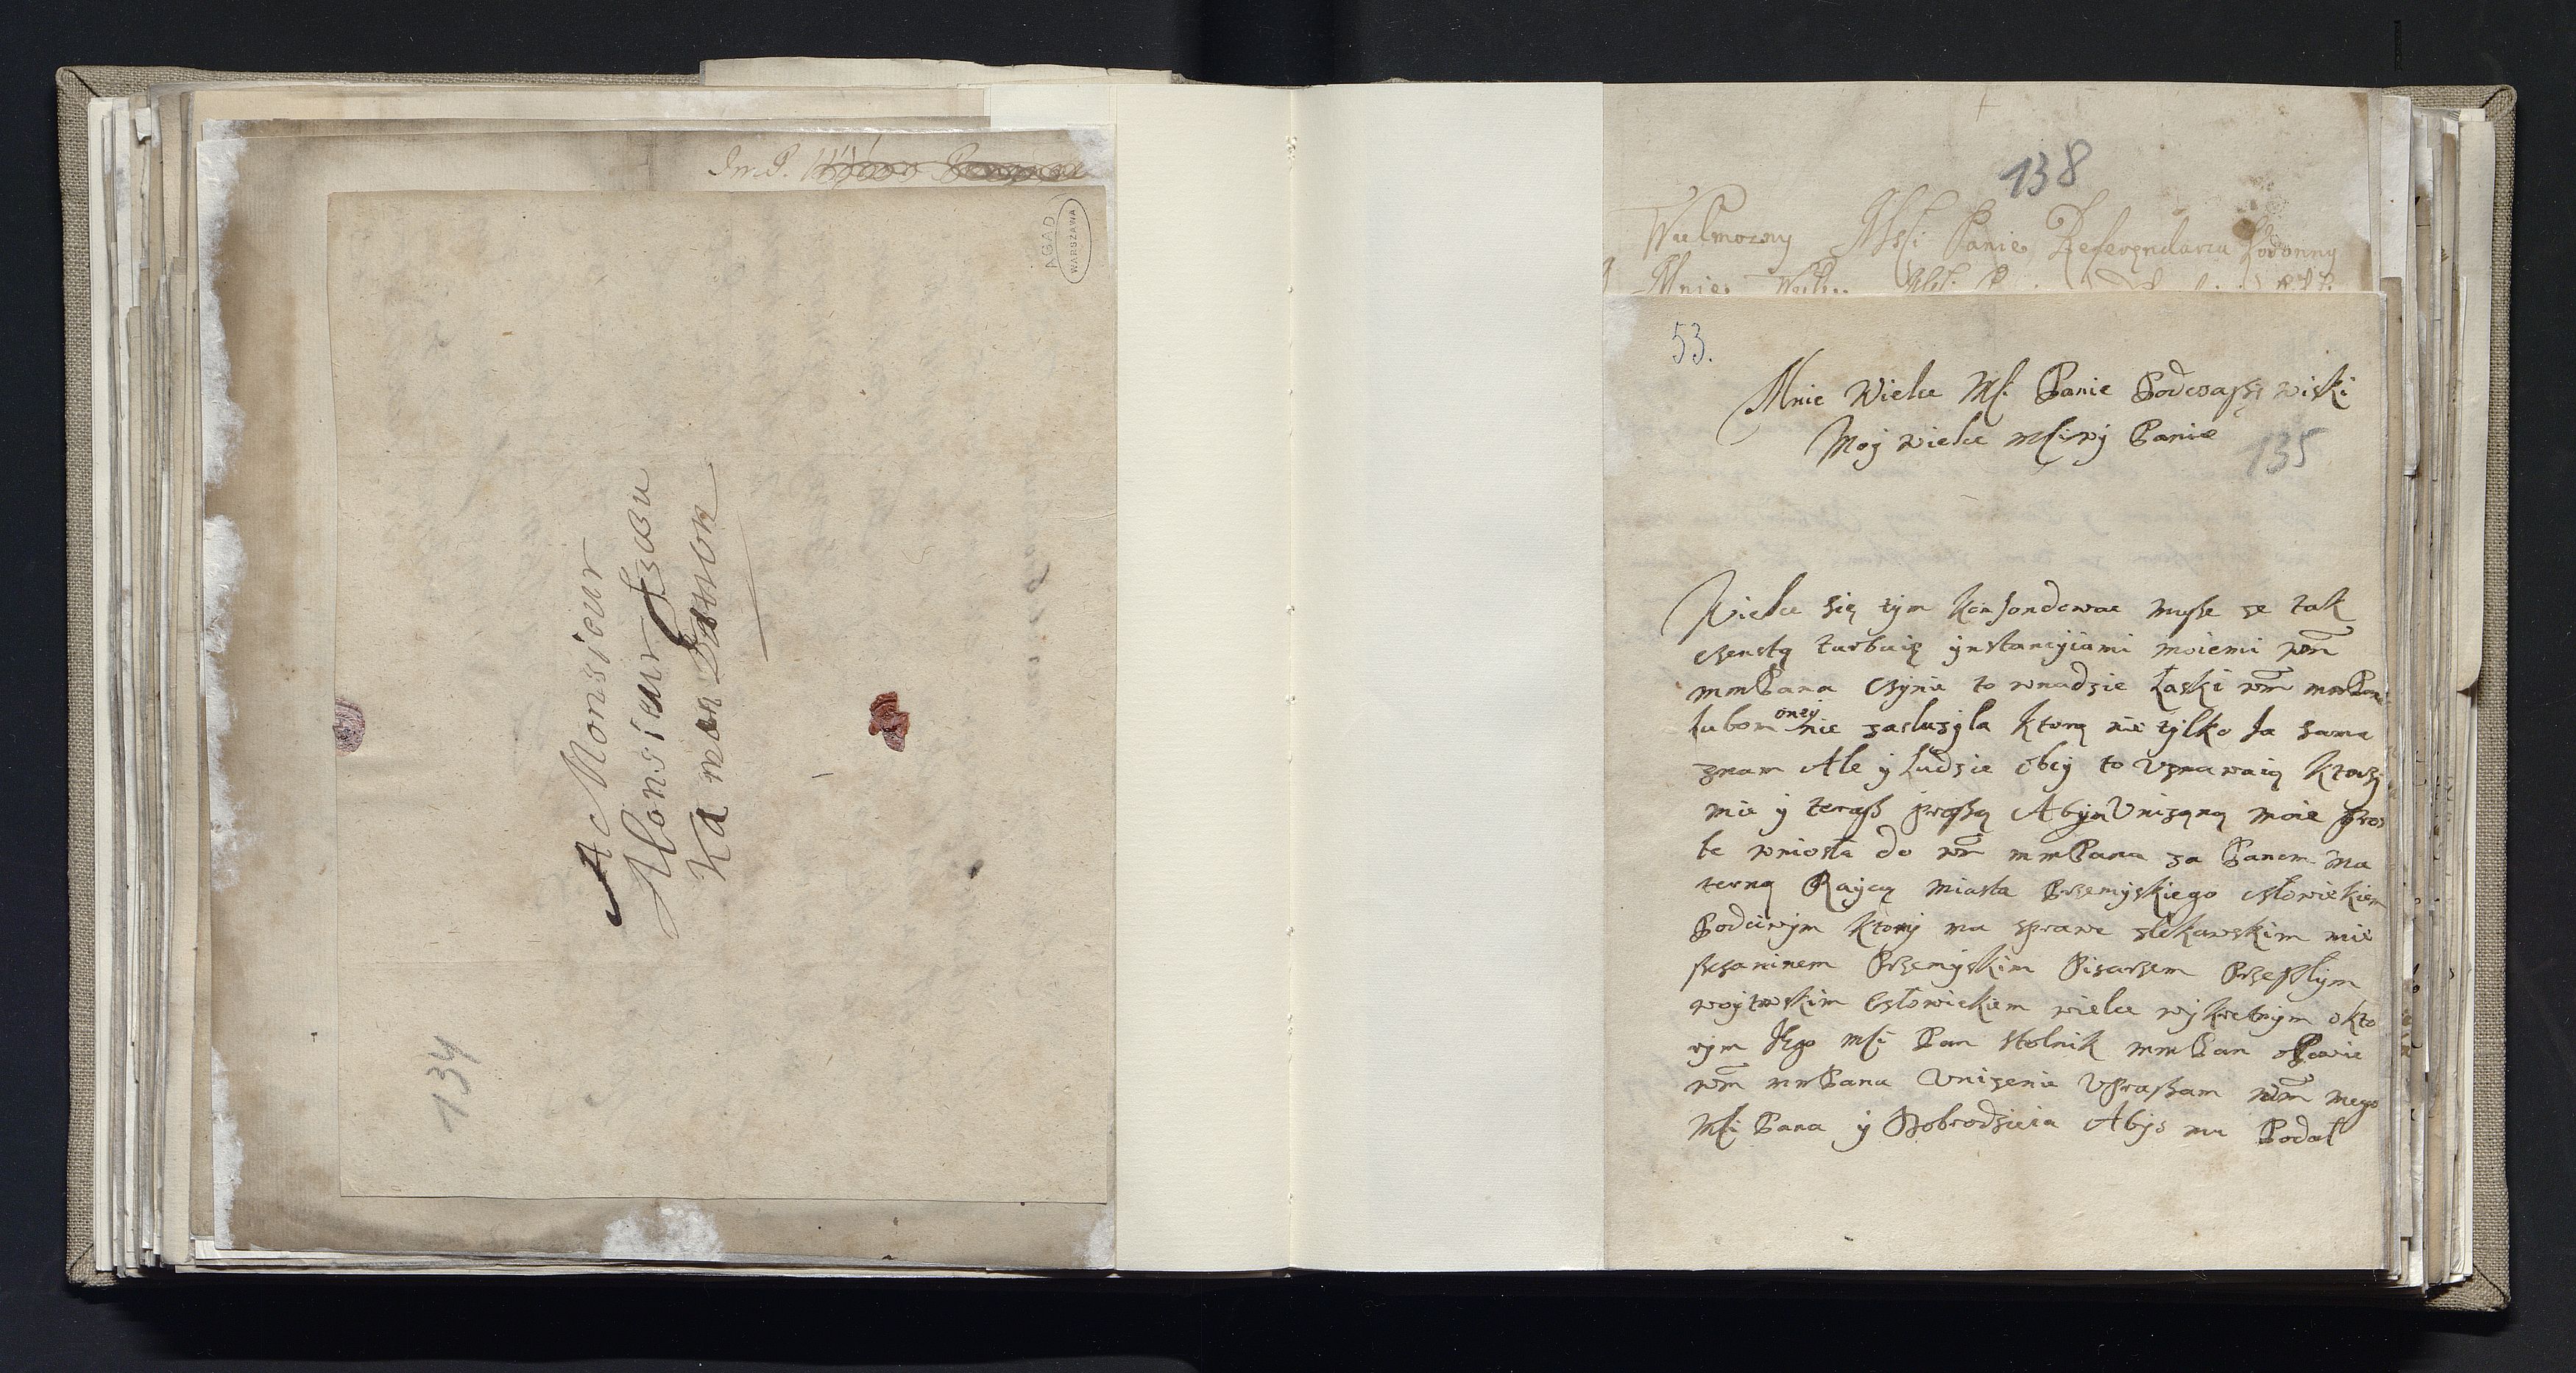 Im P.
AGAD
WARSZAWA
A Monsieur
Monsieur
134
138
Wielmozny Msci Panie Referendarzu Koronny
Mnie
53.
Mnie Wielce Msc: Panie Podczaszy
Moy wielce msciwy Panie
135
Wielce się tym konfondowac musze ze tak
czenstą turbuię ynstancyiami moiemi wm
mmPana Czynie to wnadzie Łaski wm mmPana
lubom oney nie zasluzyla ktorą nie tylko Ja sama
znam Ale y Ludzie obcy to Vznawaią ktorzy
mie y terasz proszą Abym Vnizoną moie proz
be wniosła do wm mmPana za Panem Ma
terną Raycą miasta Przemyskiego człowiekiem
Podciwym ktory ma sprawe zlekawskim mie
szczaninem Przemyskim Pisarzem Przeszlym
woytowskim Człowiekiem wielce wykretnym okto
rym Jego Msci Pan stolnik mmPan oPowie
wm mmPanu Vnizenie VPraszam wm mego
Msci Pana y Dobrodzieia Abys mu Podał